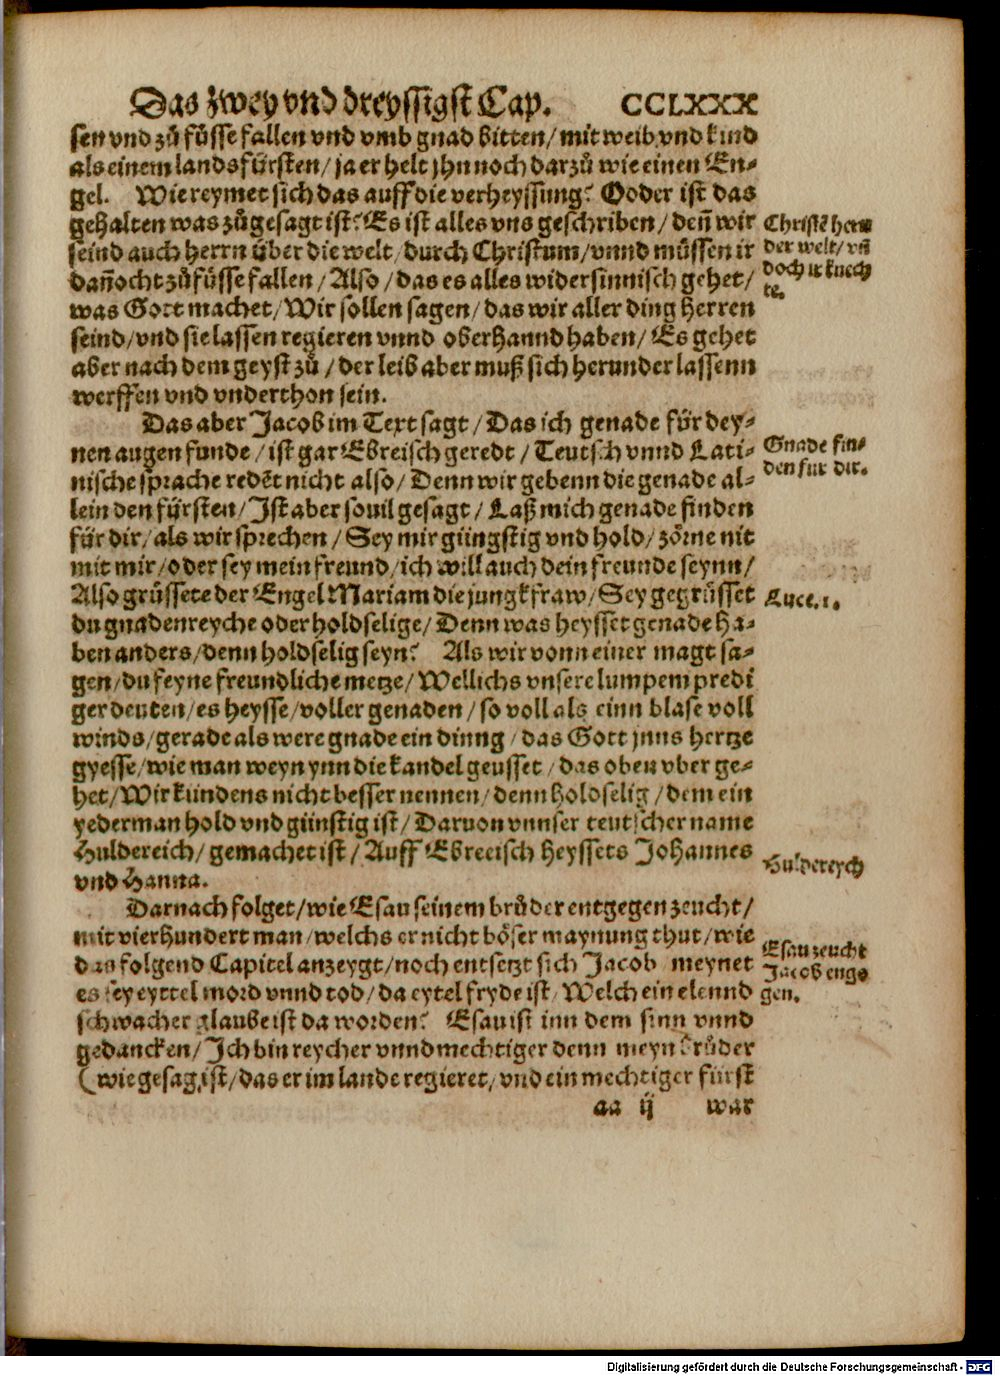 Das zwey vnd dreyssigst Cap. CCLXXX
sen vnd zů füsse fallen vnd vmb gnad bitten/ mit weib vnd kind
als einem landsfürsten/ ja er helt jhn noch darzů wie einen En⸗
gel. Wie reymet sich das auff die verheyssung? Ooder ist das
gehalten was zůgesagt ist? Es ist alles vns geschriben/ deñ wir
seind auch herrn über die welt/ durch Christum/ vnnd müssen ir
dañocht zů füsse fallen/ Also/ das es alles widersinnisch gehet/
was Gott machet/ Wir sollen sagen/ das wir aller ding herren
seind/ vnd sie lassen regieren vnnd oberhannd haben/ Es gehet
aber nach dem geyst zů/ der leib aber muß sich herunder lassenn
werffen vnd vnderthon sein.
Christē herrn
der welt/ vñ
doch ir knech
te.
Das aber Jacob im Text sagt/ Das ich genade für dey⸗
nen augen funde/ ist gar Ebreisch geredt/ Teutsch vnnd Lati⸗
nische sprache redēt nicht also/ Denn wir gebenn die genade al⸗
lein den fürsten/ Ist aber souil gesagt/ Laß mich genade finden
für dir/ als wir sprechen/ Sey mir günstig vnd hold/ zörne nit
mit mir/ oder sey mein freund/ ich will auch dein freunde seynn/
Also grüssete der Engel Mariam die jungkfraw/ Sey gegrüsset
du gnadenreyche oder holdselige/ Denn was heysset genade ha⸗
ben anders/ denn holdselig seyn? Als wir vonn einer magt sa⸗
gen/ du feyne freundliche metze/ Wellichs vnsere lumpem predi
ger deuten/ es heysse/ voller genaden/ so voll als einn blase voll
winds/ gerade als were gnade ein dinng/ das Gott jnns hertze
gyesse/ wie man weyn ynn die kandel geusset/ das oben vber ge⸗
het/ Wir kündens nicht besser nennen/ denn holdselig/ dem ein
yederman hold vnd günstig ist/ Daruon vnnser teutscher name
Huldereich/ gemachet ist/ Auff Ebreeisch heyssets Johannes
vnd Hanna.
Gnade fin⸗
den für dir.
Luce. 1.
Huldereych
Darnach folget/ wie Esau seinem brůder entgegen zeucht/
mit vierhundert man/ welchs er nicht böser maynung thut/ wie
das folgend Capitel anzeygt/ noch entsetzt sich Jacob meynet
es sey eyttel mord vnnd tod/ da eytel fryde ist/ Welch ein elennd
schwacher glaube ist da worden? Esau ist inn dem sinn vnnd
gedancken/ Ich bin reycher vnnd mechtiger denn meyn brůder
(wie gesagt ist/ das er im lande regieret/ vnd ein mechtiger fürst
Esau zeucht
Jacob engegen.
aa ij war
Digitalisierung gefördert durch die Deutsche Forschungsgemeinschaft - DFG